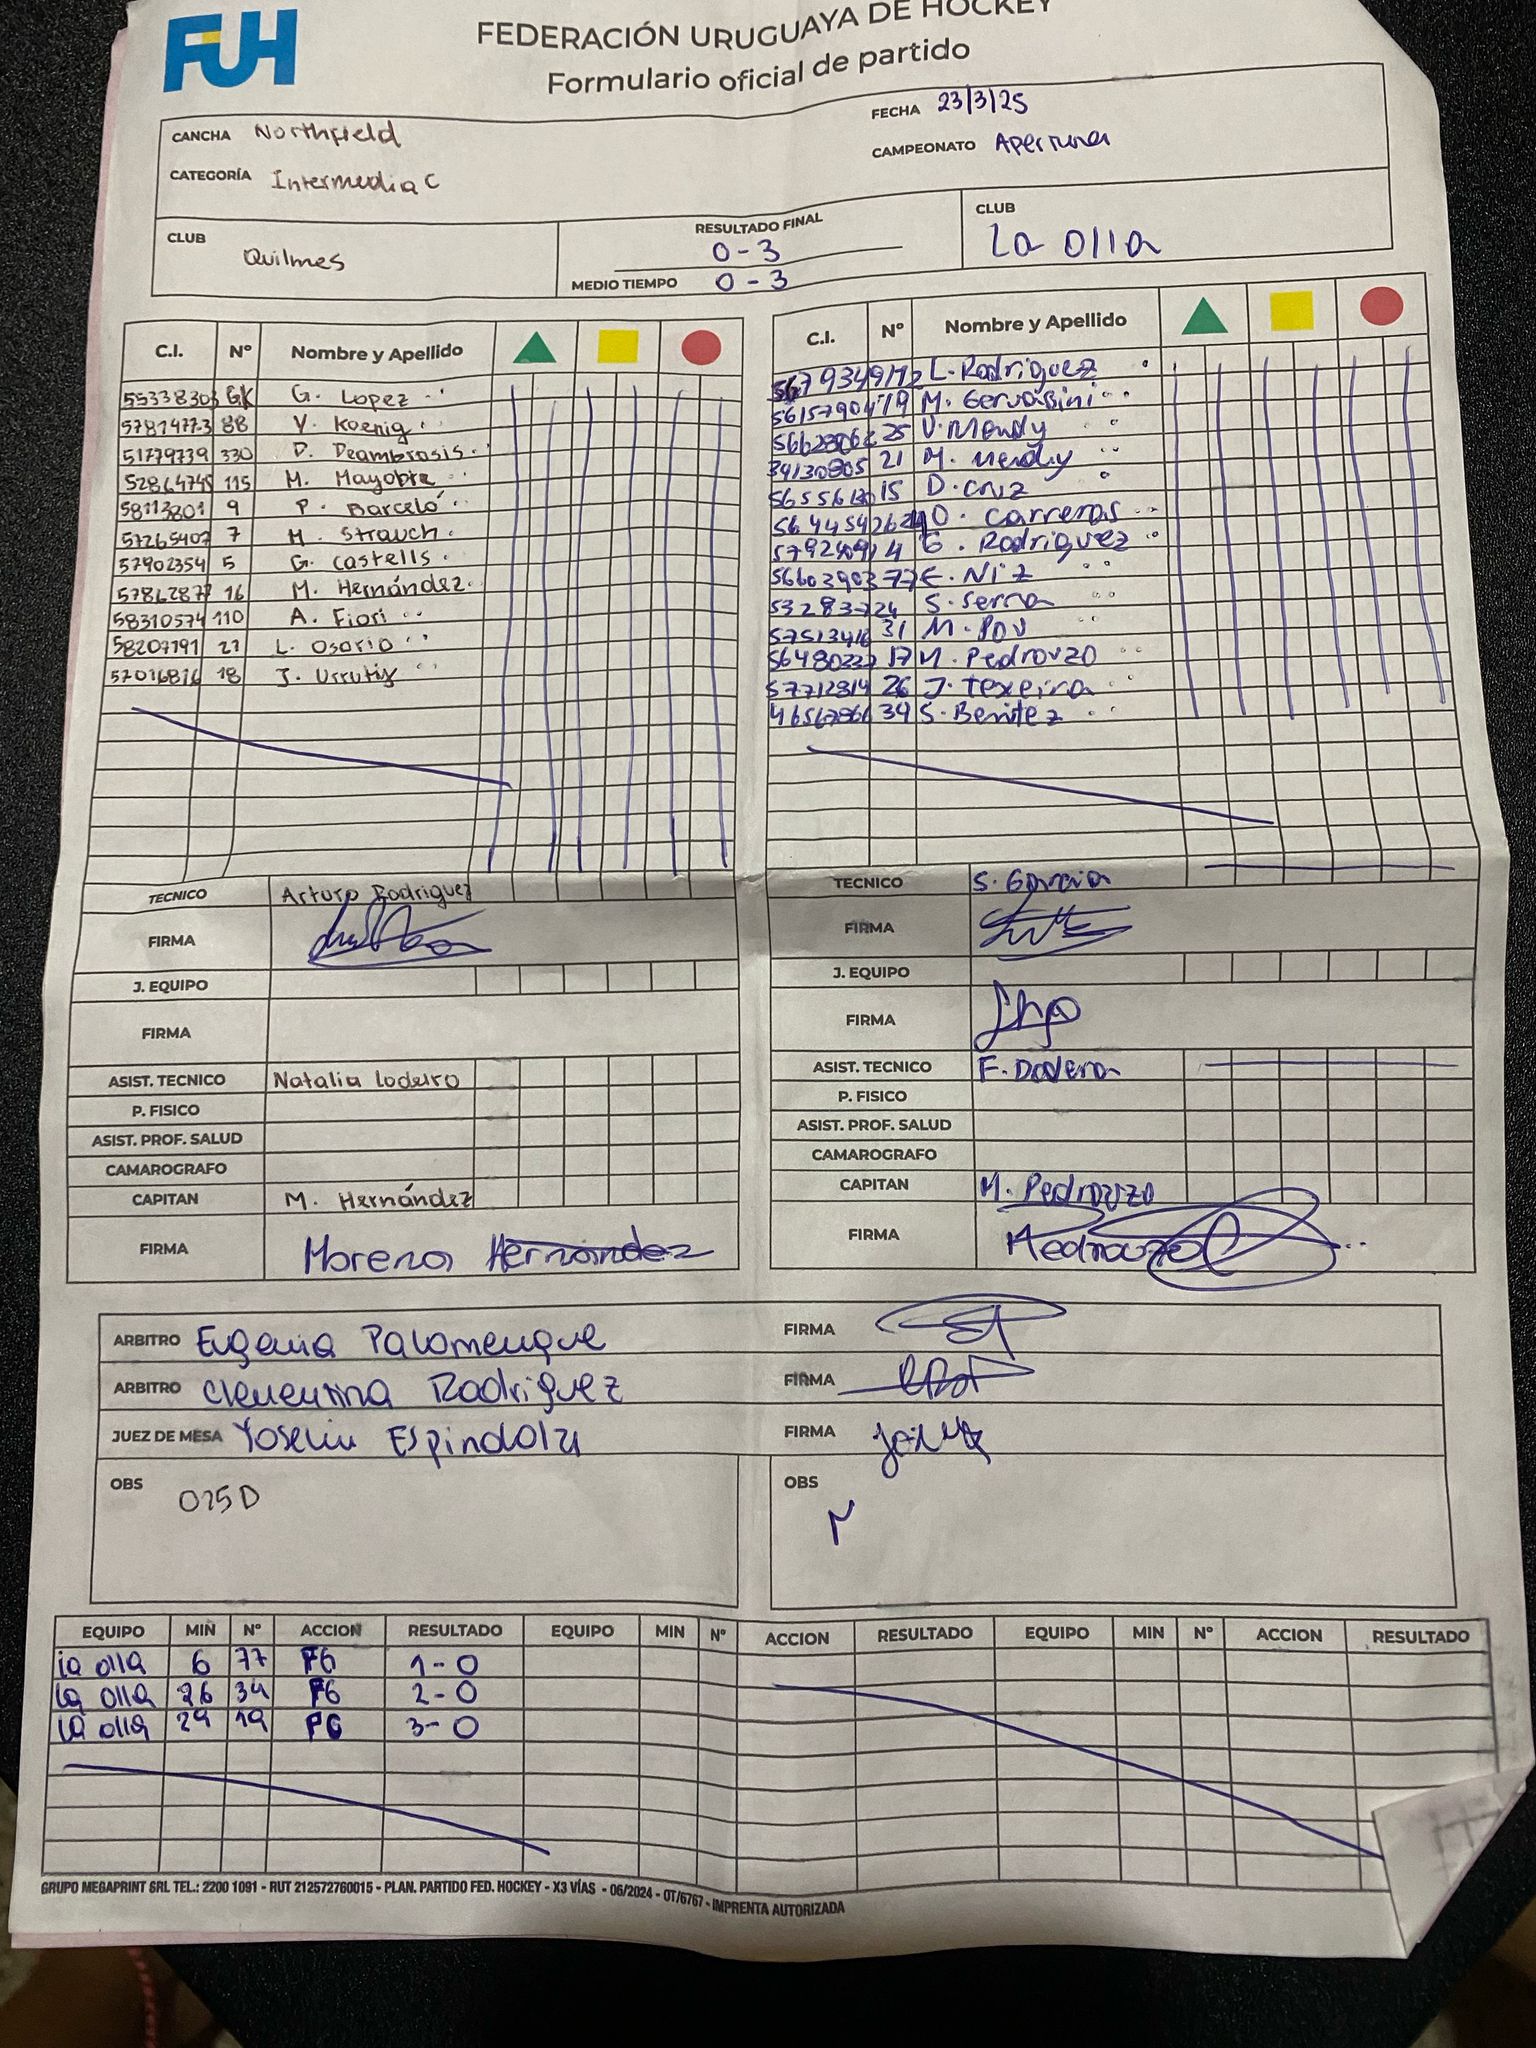 FUH
FEDERACIÓN URUGUAYA DE HOCKEY
Formulario oficial de partido
CANCHA Northfield
FECHA 23/3/25
CATEGORÍA Intermedia C
CAMPEONATO Apertura
CLUB Quilmes
RESULTADO FINAL 0-3
MEDIO TIEMPO 0-3
CLUB La Olla
C.I. Nº Nombre y Apellido
GK G. Lopez
57814773 88 V. Koenig
51779739 330 D. Deambrosis
52864745 115 M. Mayobre
58113801 9 P. Barceló
57265407 7 M. Strauch
57902354 5 G. Castells
57862877 16 M. Hernández
58310574 110 A. Fiori
58207191 21 L. Osorio
57016816 18 J. Urrutia
TECNICO Arturo Rodriguez
FIRMA
J. EQUIPO
FIRMA
ASIST. TECNICO Natalia Lodeiro
P. FISICO
ASIST. PROF. SALUD
CAMAROGRAFO
CAPITAN M. Hernández
FIRMA Morena Hernández
C.I. Nº Nombre y Apellido
L. Rodriguez
19 M. Gervasini
25 V. Mendy
34130805 21 M. Mendy
15 D. Cruz
O. Carreras
4 G. Rodriguez
56603903 77 E. Niz
S. Serna
31 M. Pou
17 M. Pedrouzo
57712814 26 J. Texeira
34 S. Benitez
TECNICO S. Garcia
FIRMA
J. EQUIPO
FIRMA
ASIST. TECNICO F. Dodera
P. FISICO
ASIST. PROF. SALUD
CAMAROGRAFO
CAPITAN M. Pedrouzo
FIRMA
ARBITRO Eugenia Palomenque FIRMA
ARBITRO Clementina Rodriguez FIRMA
JUEZ DE MESA Yoselin Espindola FIRMA
OBS
OBS
EQUIPO MIN Nº ACCION RESULTADO EQUIPO MIN Nº ACCION RESULTADO EQUIPO MIN Nº ACCION RESULTADO
la olla 6 77 FG 1-0
La olla 26 34 FG 2-0
La olla 29 19 3-0
GRUPO MEGAPRINT SRL TEL.: 2200 1091 - RUT 212572760015 - PLAN. PARTIDO FED. HOCKEY - X3 VÍAS - 06/2024 - OT/6767 - IMPRENTA AUTORIZADA